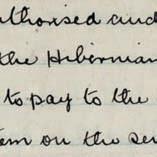 authorised and
the Hibernian
to pay to the
on the